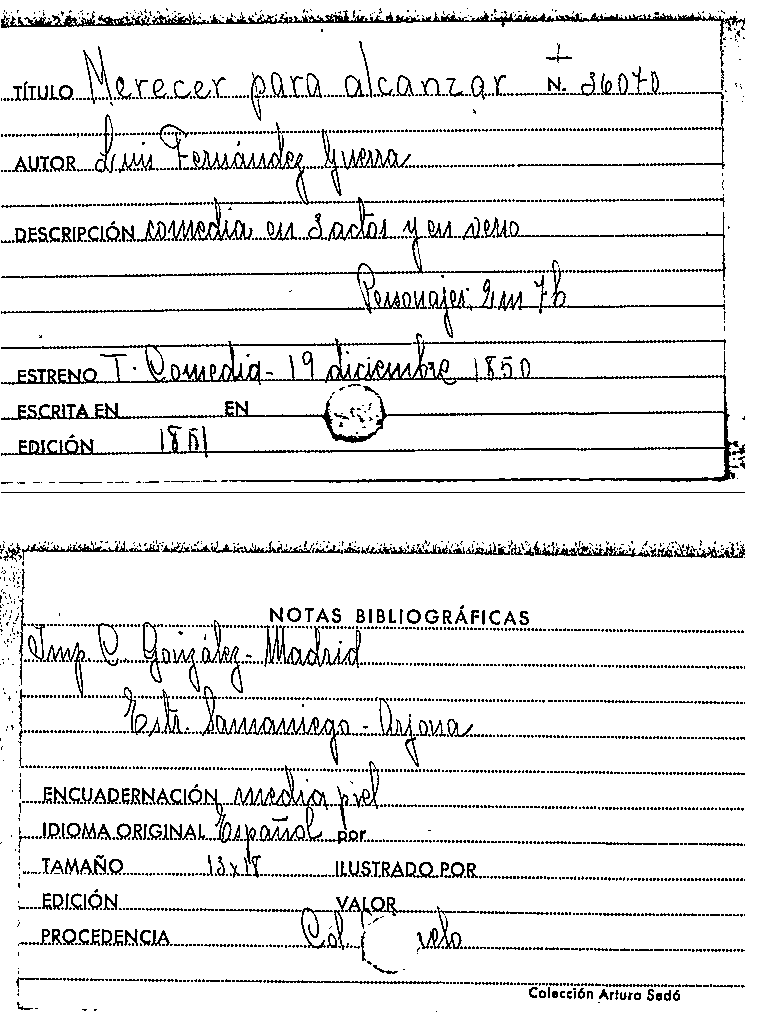 TÍTULO Merecer para alcanzar N. 36070
AUTOR Luis Fernández Guerra
DESCRIPCIÓN comedia en 3 actos y en verso
Personajes: 2 m 7 h
ESTRENO T. Comedia - 19 diciembre 1850
ESCRITA EN EN
EDICIÓN 1851
NOTAS BIBLIOGRÁFICAS
Imp. C. González - Madrid
Estr. Samaniego - Arjona
ENCUADERNACIÓN media piel
IDIOMA ORIGINAL Español por
TAMAÑO 13x18 ILUSTRADO POR
EDICIÓN VALOR
PROCEDENCIA Col.
Colección Arturo Sedó